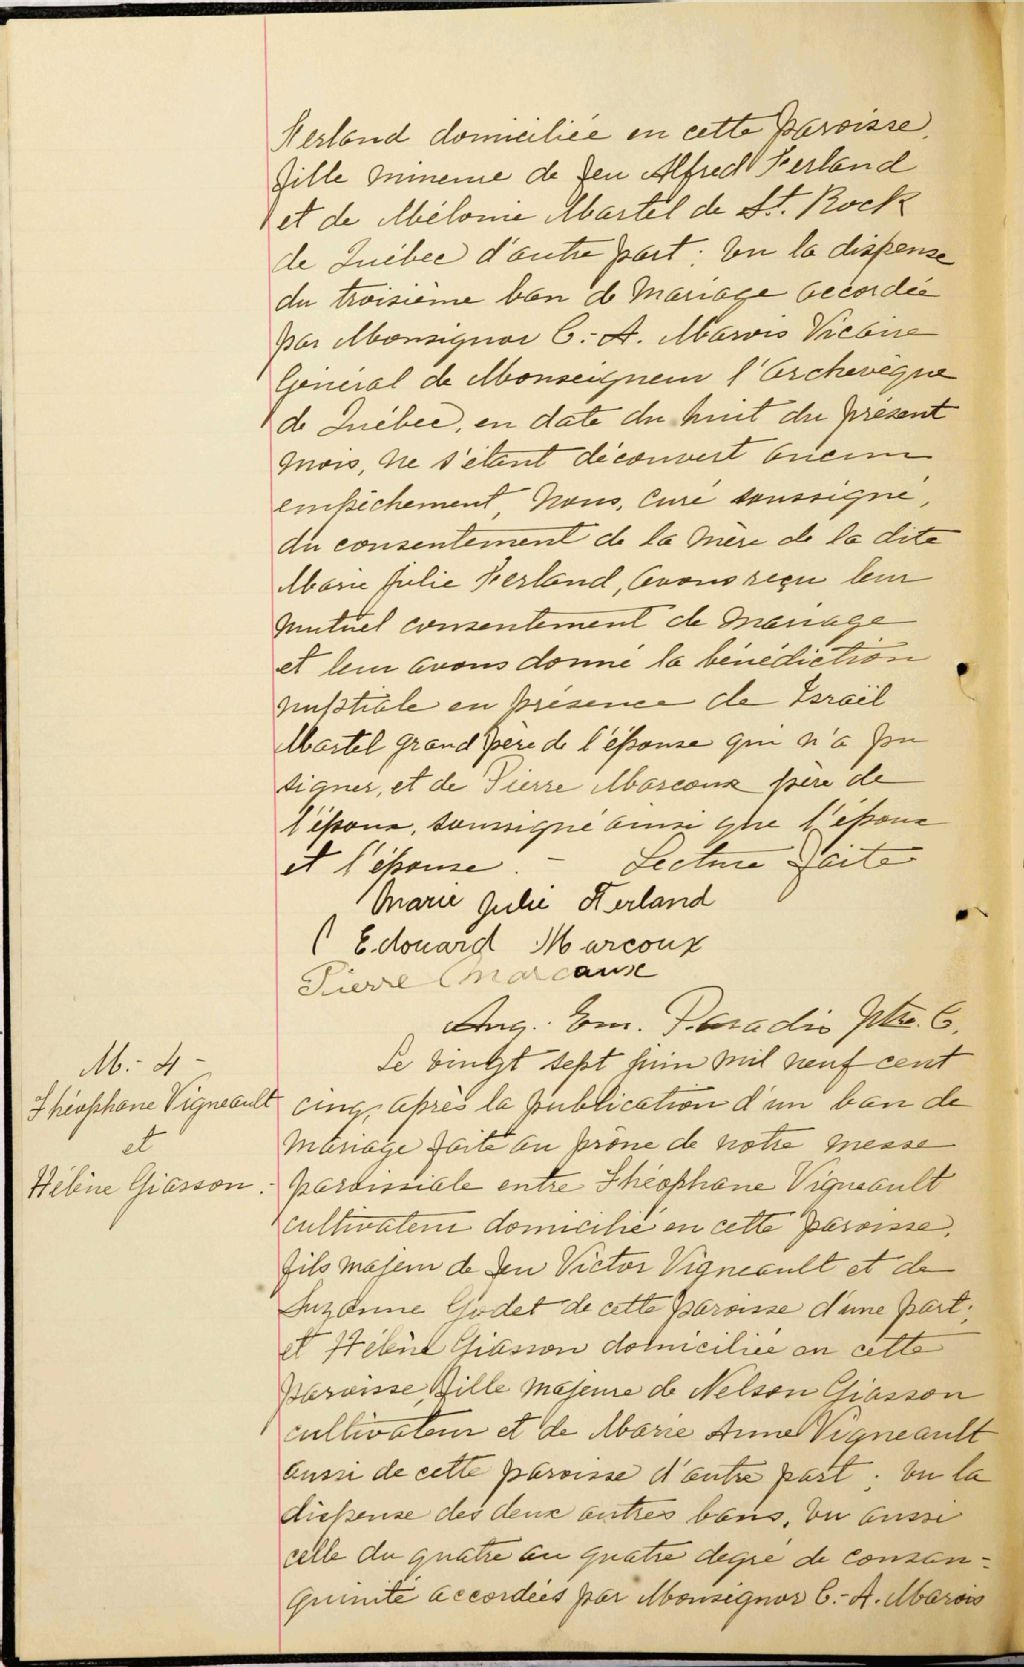 Ferland domiciliée en cette paroisse,
fille mineure de feu Alfred Ferland
et de Mélonie Martel de St. Rock
de Québec d'autre part ; vu la dispense
du troisième ban de mariage accordée
par Monsignor C.-A. Marois Vicaire
Général de Monseigneur l'Archevêque
de Québec, en date du huit du présent
mois, ne s'étant découvert aucun
empêchement, Nous, curé soussigné,
du consentement de la mère de la dite
Marie Julie Ferland, avons reçu leur
mutuel consentement de mariage
et leur avons donné la bénédiction
nuptiale en présence de Israël
Martel grand père de l'épouse qui n'a pu
signer, et de Pierre Marcoux père de
l'époux, soussigné ainsi que l'époux
et l'épouse. - Lecture faite
Marie Julie Ferland
Edouard Marcoux
Pierre Marcoux
Aug. Em. Paradis Ptre. C.
M.- 4 -
Théophane Vigneault
et
Hélène Giasson.-
Le vingt sept juin mil neuf cent
cinq, après la publication d'un ban de
mariage faite au prône de notre messe
paroissiale entre Théophane Vigneault
cultivateur domicilié en cette paroisse,
fils majeur de feu Victor Vigneault et de
Suzanne Godet de cette paroisse d'une part ;
et Hélène Giasson domiciliée en cette
paroisse, fille majeure de Nelson Giasson
cultivateur et de Marie Anne Vigneault
aussi de cette paroisse d'autre part ; vu la
dispense des deux autres bans, vu aussi
celle du quatre au quatre degré de consan=
guinité accordées par Monsignor C.-A. Marois